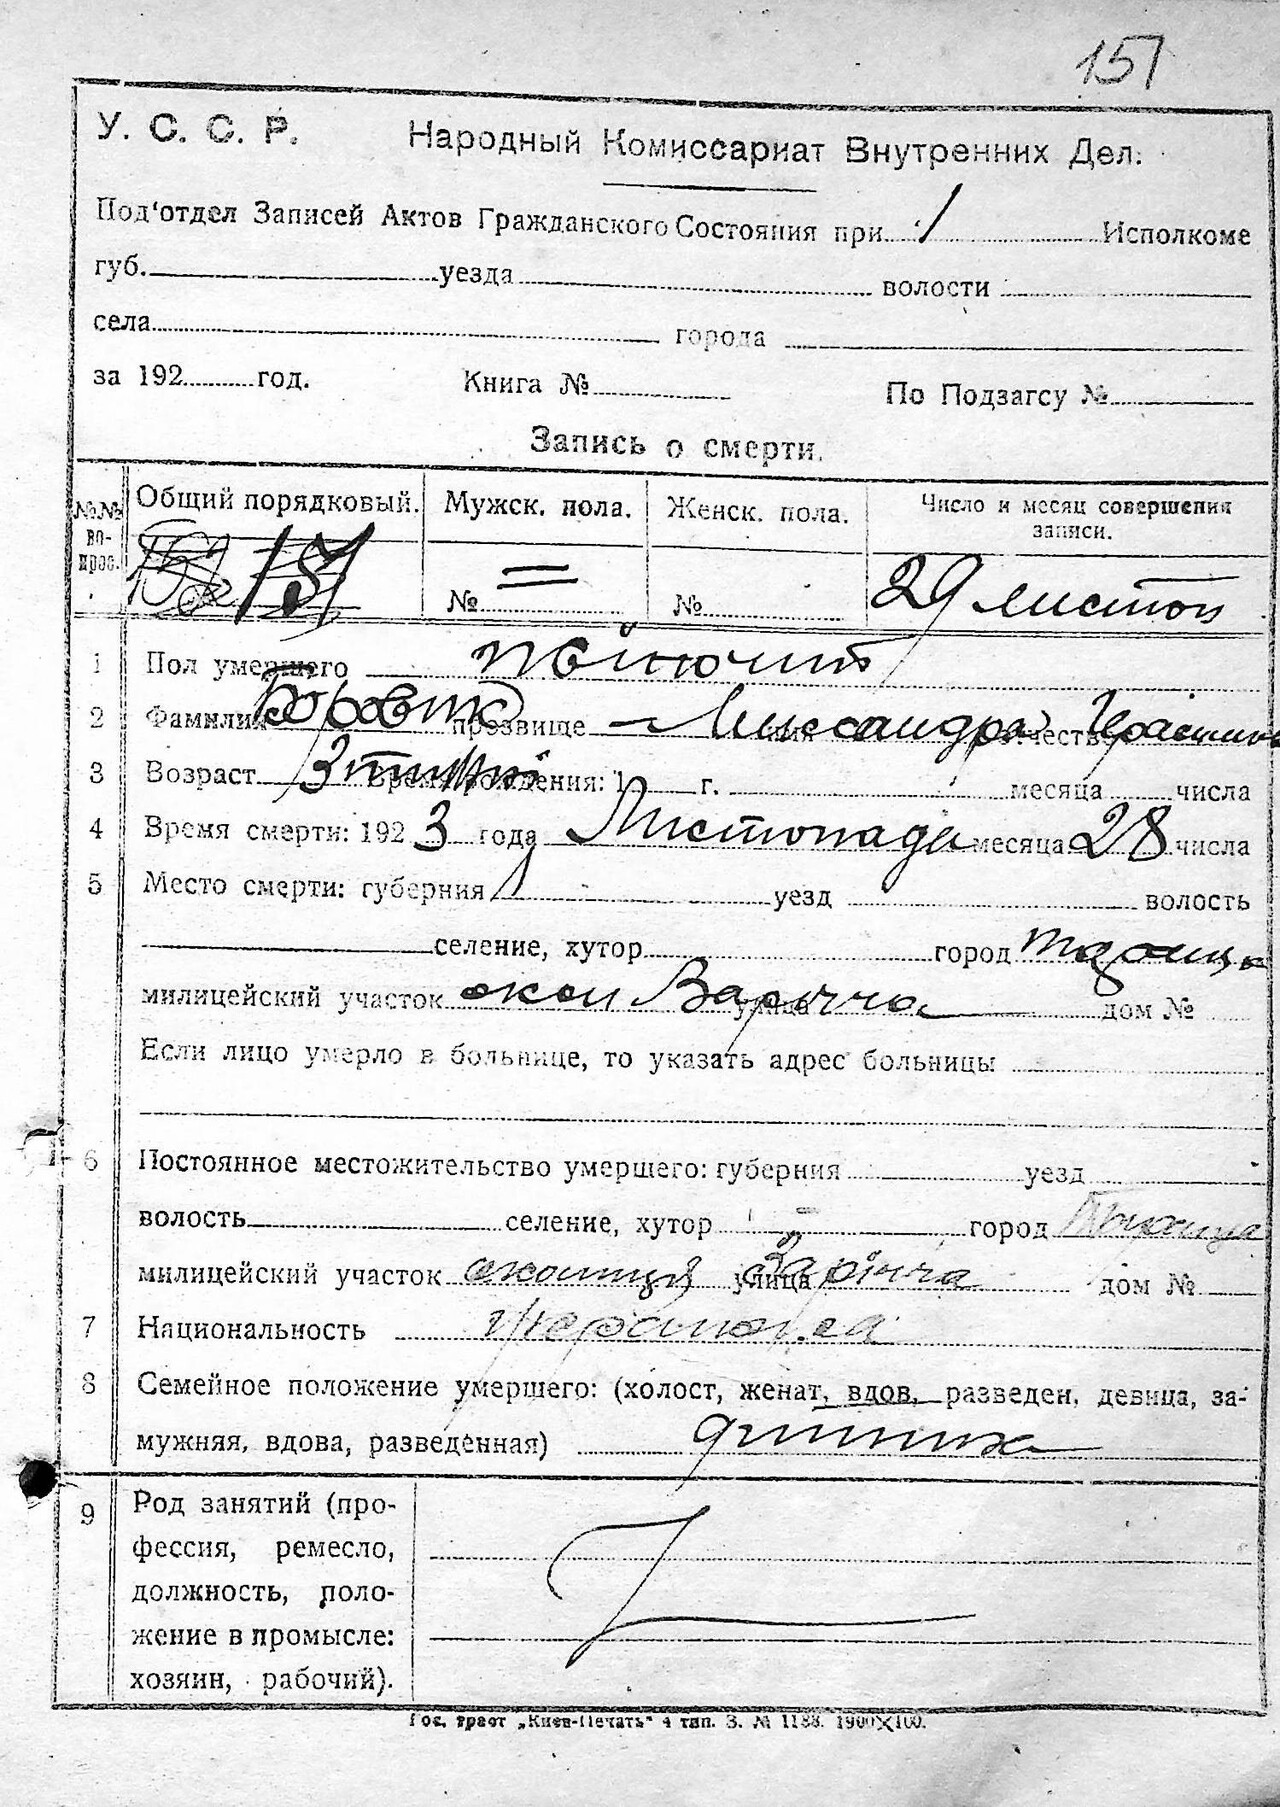 151
У. С. С. Р. Народный Комиссариат Внутренних Дел.
Под'отдел Записей Актов Гражданского Состояния при Исполкоме
губ. уезда волости
села города
за 192 год. Книга № По Подзагсу №
Запись о смерти.
№№ вопрос. Общий порядковый. Мужск. пола. Женск. пола. Число и месяц совершения записи.
151 № = № 29 листоп
1 Пол умершего жіночит
2 Фамилия прозвище — имя отчество
3 Возраст 3 Время рождения: 1 г. месяца числа
4 Время смерти: 1923 года Листопада месяца 28 числа
5 Место смерти: губерния уезд волость
селение, хутор город
милицейский участок улица дом №
Если лицо умерло в больнице, то указать адрес больницы
6 Постоянное местожительство умершего: губерния уезд
волость селение, хутор город
милицейский участок околиця улица Зарічча дом №
7 Национальность
8 Семейное положение умершего: (холост, женат, вдов, разведен, девица, за-
мужняя, вдова, разведенная)
9 Род занятий (про-
фессия, ремесло,
должность, поло-
жение в промысле:
хозяин, рабочий).
Гос. трест „Киев-Печать" 4 тип. З. № 1188. 1900×100.